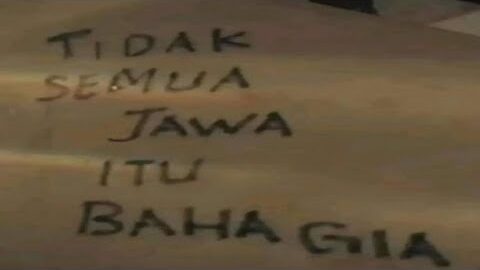 TIDAK
SEMUA
JAWA
ITU
BAHAGIA